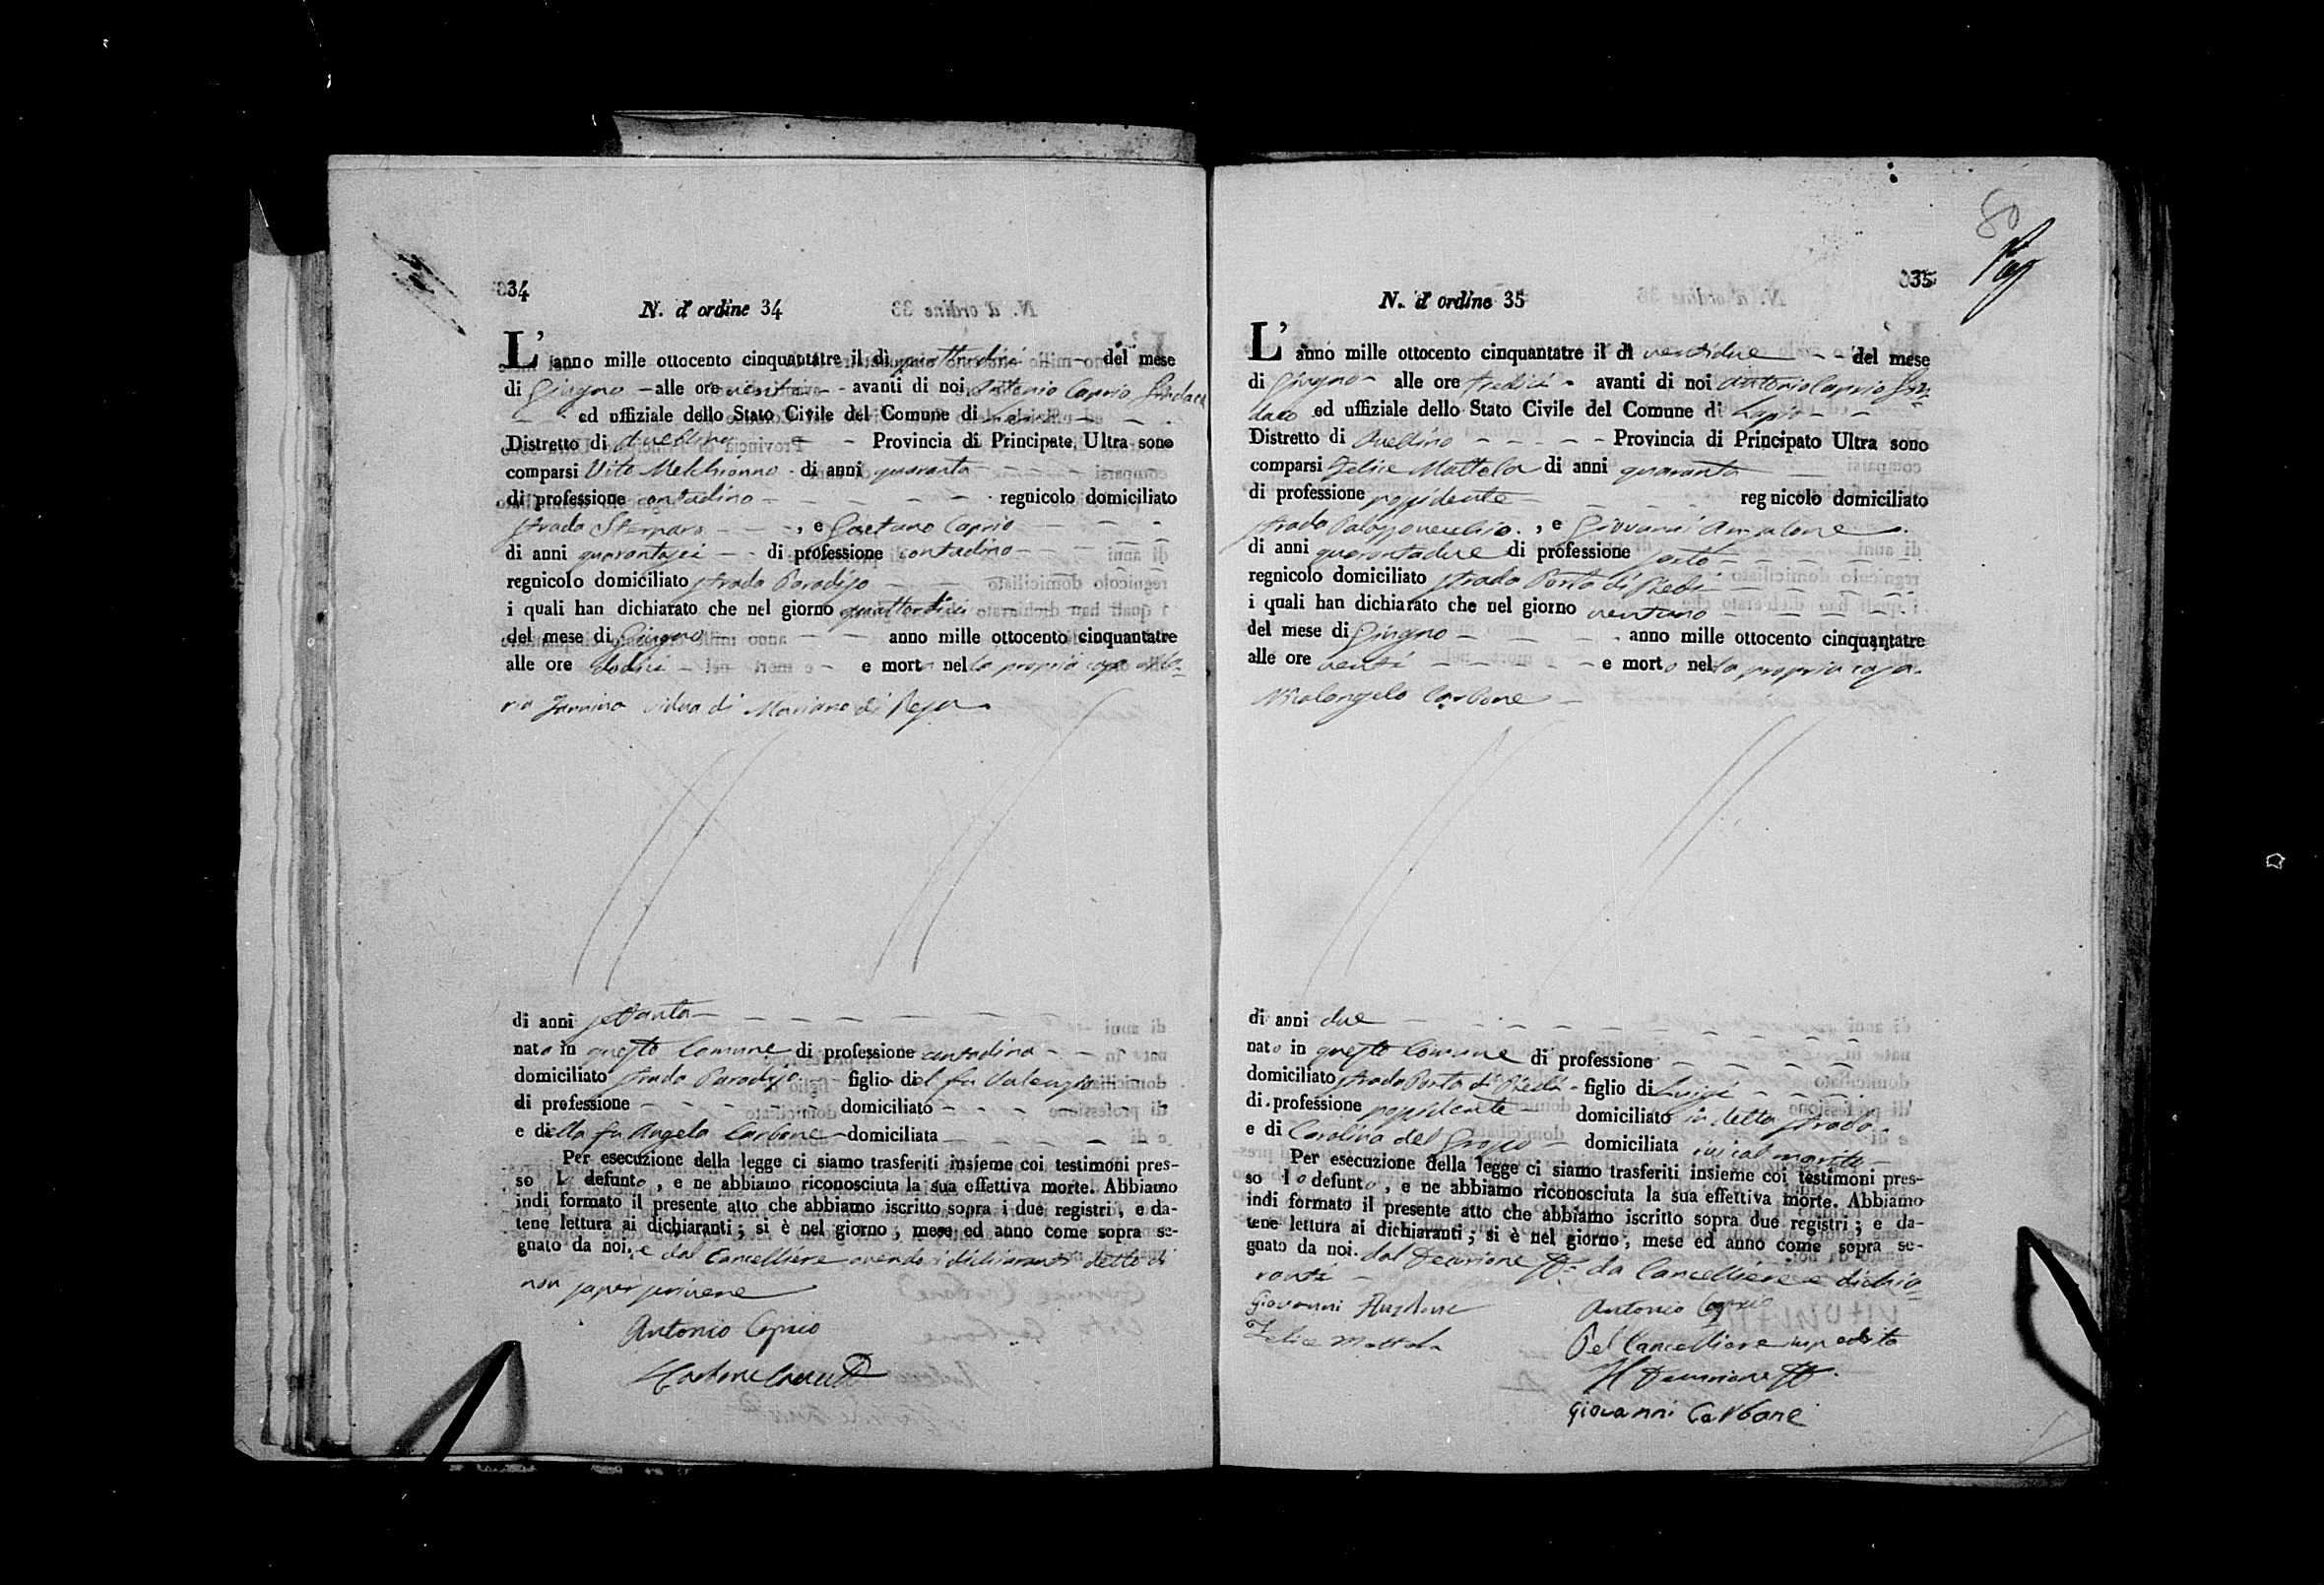 34
N. d' ordine 34
L' anno mille ottocento cinquantatre il dì quattordici del mese
di Giugno alle ore venti avanti di noi Antonio Caprio Sindaco
ed uffiziale dello Stato Civile del Comune di
Distretto di Avellino Provincia di Principato Ultra sono
comparsi Vito Melchionno di anni quaranta
di professione contadino regnicolo domiciliato
strada Sterparo , e Gaetano Caprio
di anni quarantasei di professione contadino
regnicolo domiciliato strada Paradiso
i quali han dichiarato che nel giorno quattordici
del mese di Giugno anno mille ottocento cinquantatre
alle ore dodici e morta nella propria casa Ma=
ria Iannino vidua di Mariano di
di anni settanta
nata in questo Comune di professione contadina
domiciliato strada Paradiso figlia del fu
di professione domiciliato
e della fu Angela Carbone domiciliata
Per esecuzione della legge ci siamo trasferiti insieme coi testimoni pres-
so la defunta, e ne abbiamo riconosciuta la sua effettiva morte. Abbiamo
indi formato il presente atto che abbiamo iscritto sopra i due registri, e da-
tene lettura ai dichiaranti; si è nel giorno, mese ed anno come sopra se-
gnato da noi, e dal Cancelliere avendo i dichiaranti detto di
non saper scrivere
Antonio Caprio
Carbone
80
35
N. d' ordine 35
L' anno mille ottocento cinquantatre il dì ventidue del mese
di Giugno alle ore tredici avanti di noi Antonio Caprio Sin=
daco ed uffiziale dello Stato Civile del Comune di Lapio
Distretto di Avellino Provincia di Principato Ultra sono
comparsi Felice Mattola di anni quaranta
di professione possidente regnicolo domiciliato
strada Palazzovecchio , e Giovanni Anzalone
di anni quarantadue di professione sarto
regnicolo domiciliato strada Porta di Piedi
i quali han dichiarato che nel giorno ventuno
del mese di Giugno anno mille ottocento cinquantatre
alle ore venti e morto nella propria casa
Nicolangelo Carbone
di anni due
nato in questo Comune di professione
domiciliato strada Porta di Piedi figlio di Luigi
di professione possidente domiciliato in detta strada
e di Carolina del Grosso domiciliata ivi col marito
Per esecuzione della legge ci siamo trasferiti insieme coi testimoni pres-
so lo defunto, e ne abbiamo riconosciuta la sua effettiva morte. Abbiamo
indi formato il presente atto che abbiamo iscritto sopra due registri; e da-
tene lettura ai dichiaranti; si è nel giorno, mese ed anno come sopra se-
gnato da noi. dal Decurione da Cancelliere e dichia=
ranti
Giovanni Anzalone
Antonio Caprio
Felice Mattola
Pel Cancelliere impedito
Il Decurione
Giovanni Carbone